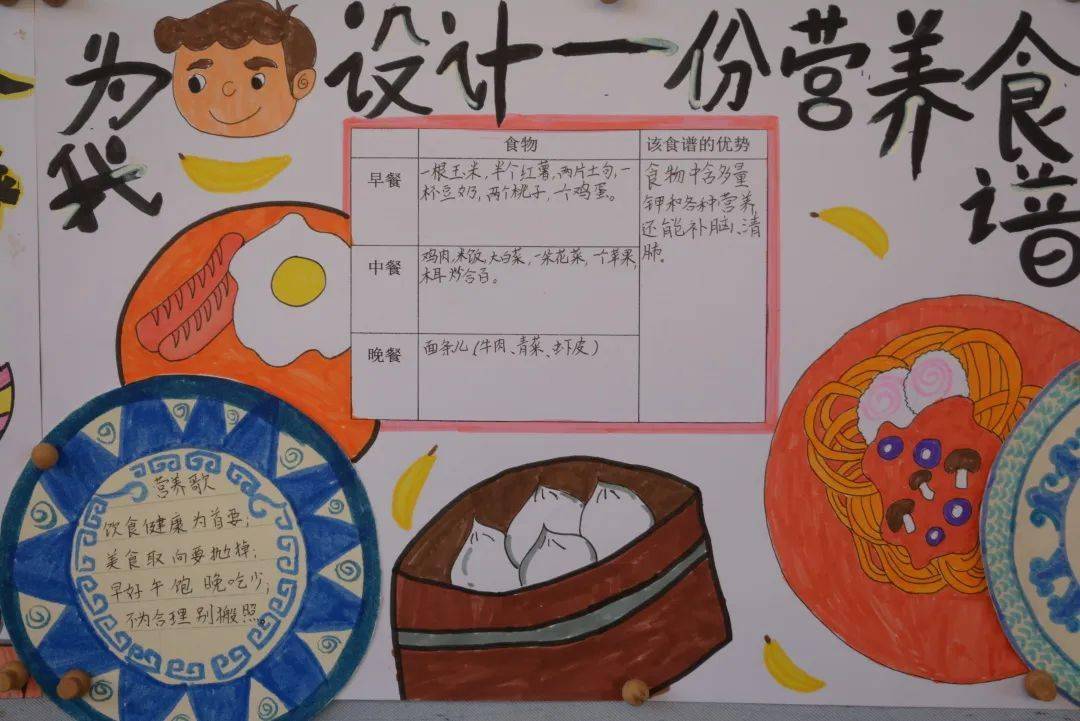 为我设计一份营养食谱
食物
该食谱的优势
早餐
一根玉米,半个红薯,两片土司,一
杯豆奶,两个桃子,一个鸡蛋。
食物中含多量
钾和各种营养,
还能补脑、清
肺。
中餐
鸡肉,米饭,大白菜,一朵花菜,一个苹果,
木耳炒合百。
晚餐
面条儿(牛肉、青菜、虾皮)
营养歌
饮食健康为首要;
美食取向要抛掉;
早好午饱晚吃少;
不为合理别搬照。